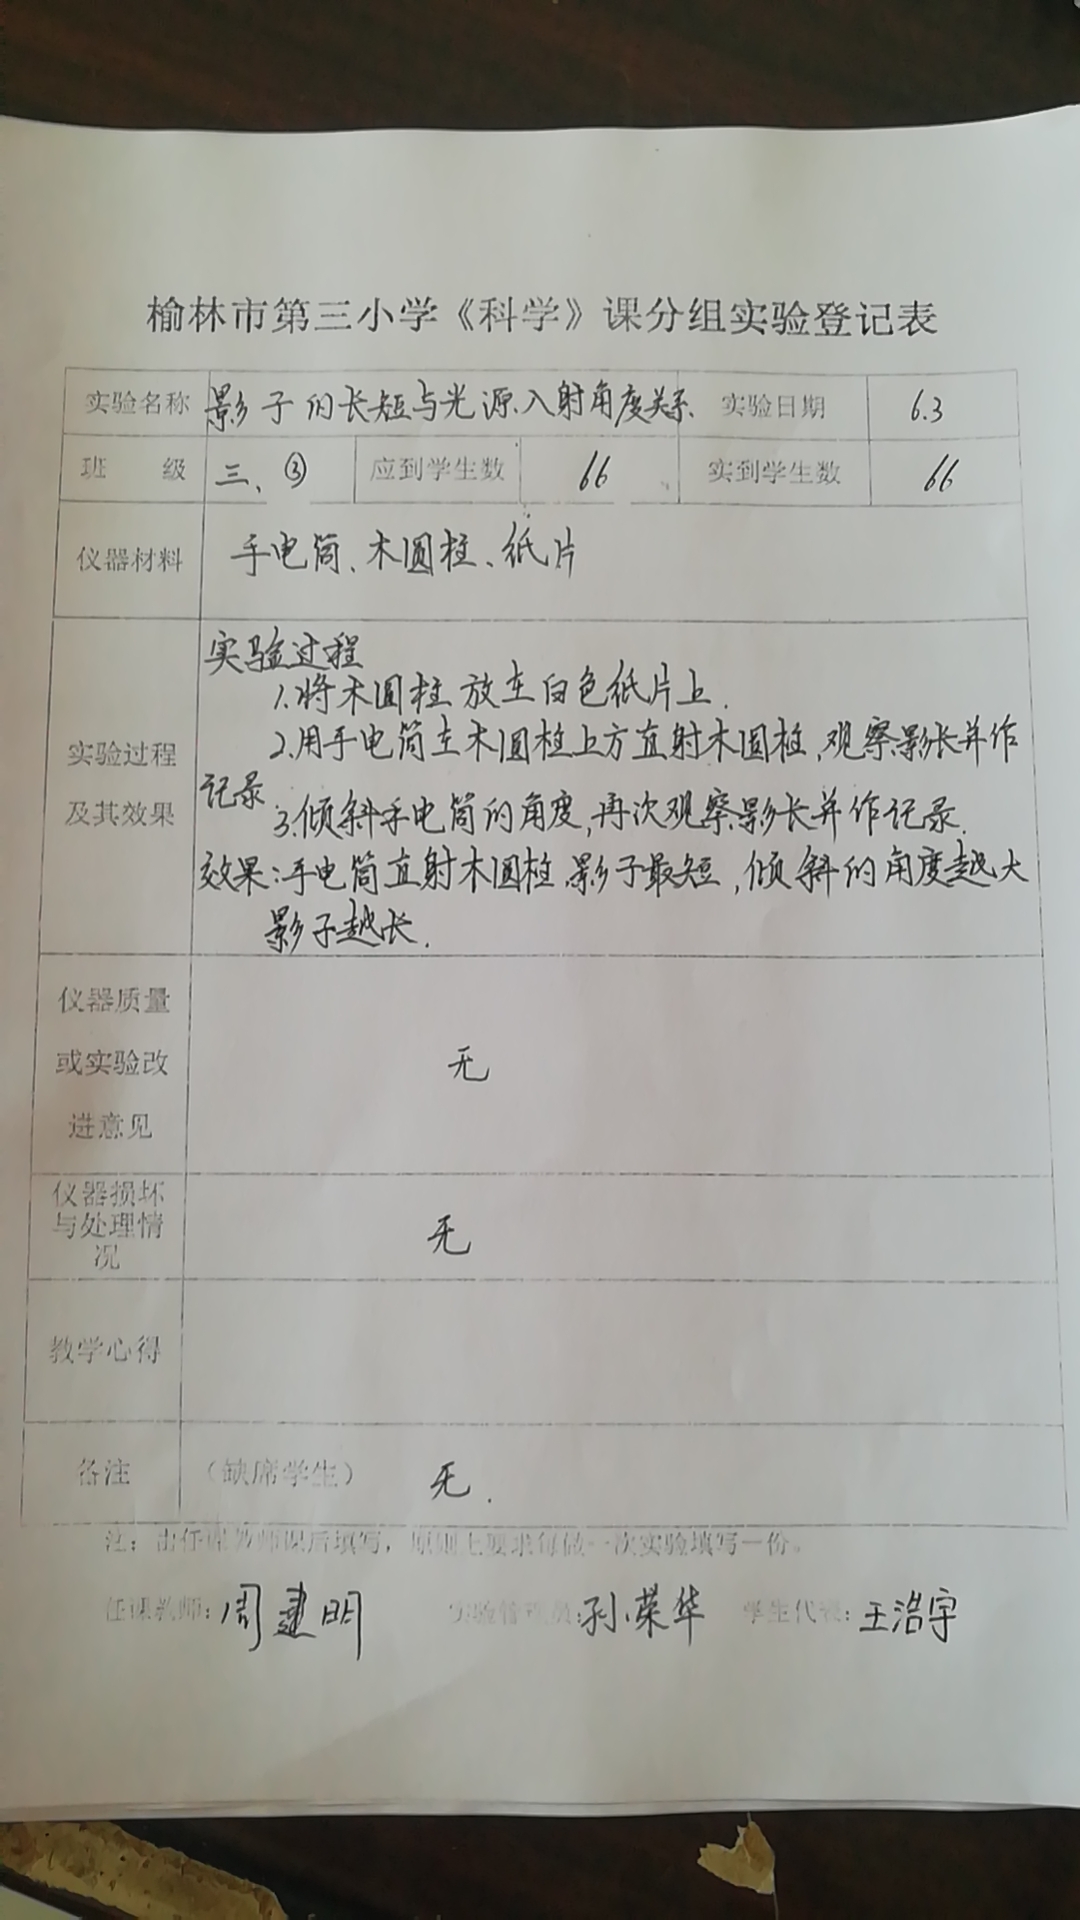 榆林市第三小学《科学》课分组实验登记表
实验名称 影子的长短与光源入射角度关系 实验日期 6.3
班 级 三、③ 应到学生数 66 实到学生数 66
仪器材料 手电筒、木圆柱、纸片
实验过程
1.将木圆柱放在白色纸片上.
实验过程 2.用手电筒在木圆柱上方直射木圆柱,观察影长并作
记录.
及其效果 3.倾斜手电筒的角度,再次观察影长并作记录.
效果:手电筒直射木圆柱影子最短,倾斜的角度越大
影子越长.
仪器质量
或实验改 无
进意见
仪器损坏
与处理情 无
况
教学心得
备注 (缺席学生) 无.
注：由任课教师课后填写，原则上要求每做一次实验填写一份。
任课教师:周建明 实验管理员:孙荣华 学生代表:王浩宇